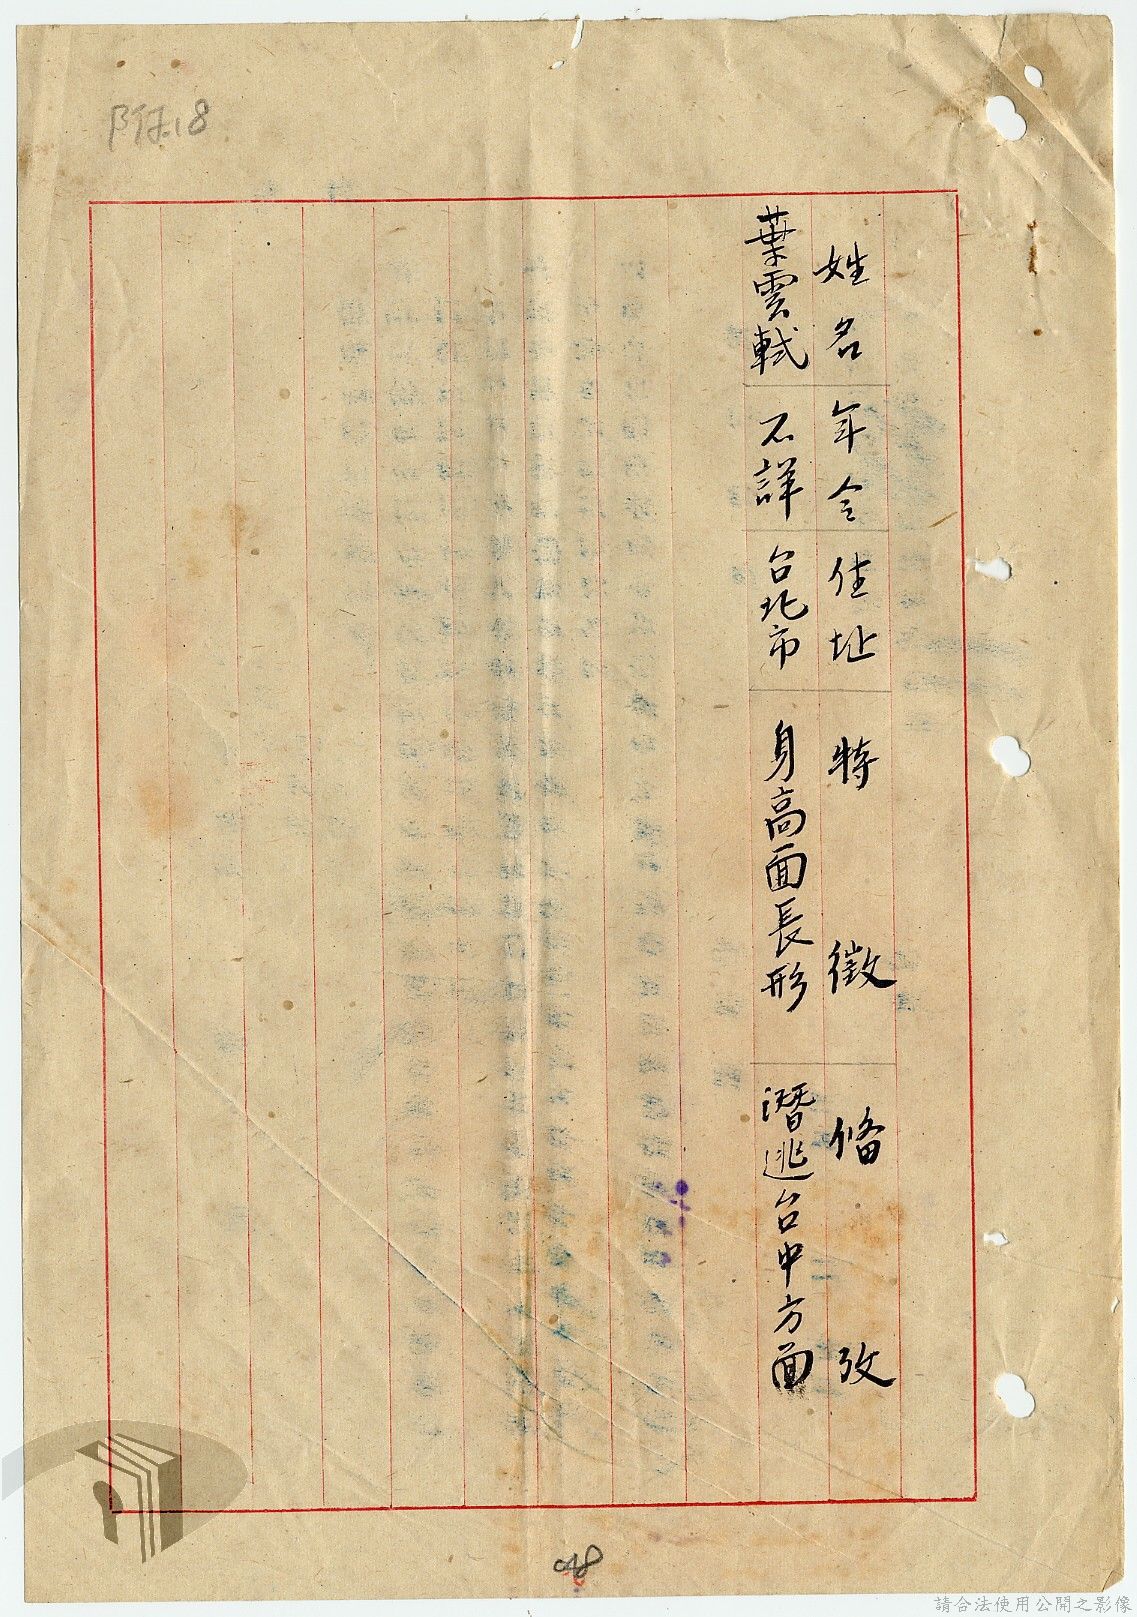 附.18
姓名 年令 住址 特徵 俻攷
葉雲軾 不詳 台北市 身高面長形 潛逃台中方面
48
請合法使用公開之影像